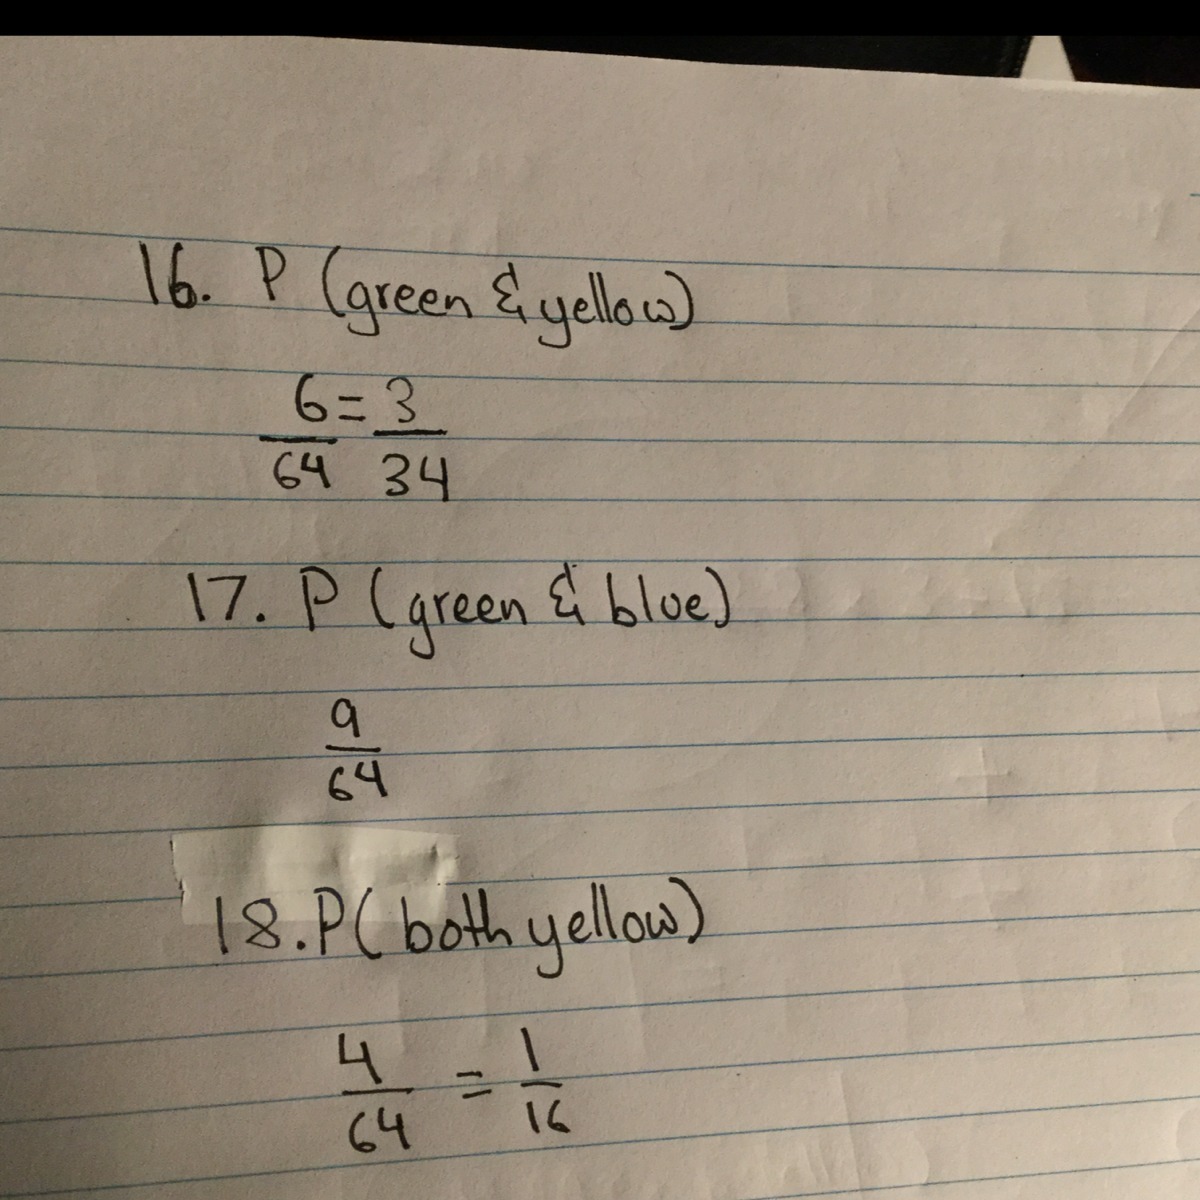 16. P (green & yellow)
6 = 3
64 34
17. P (green & blue)
9
64
18. P( both yellow)
4 = 1
64 16